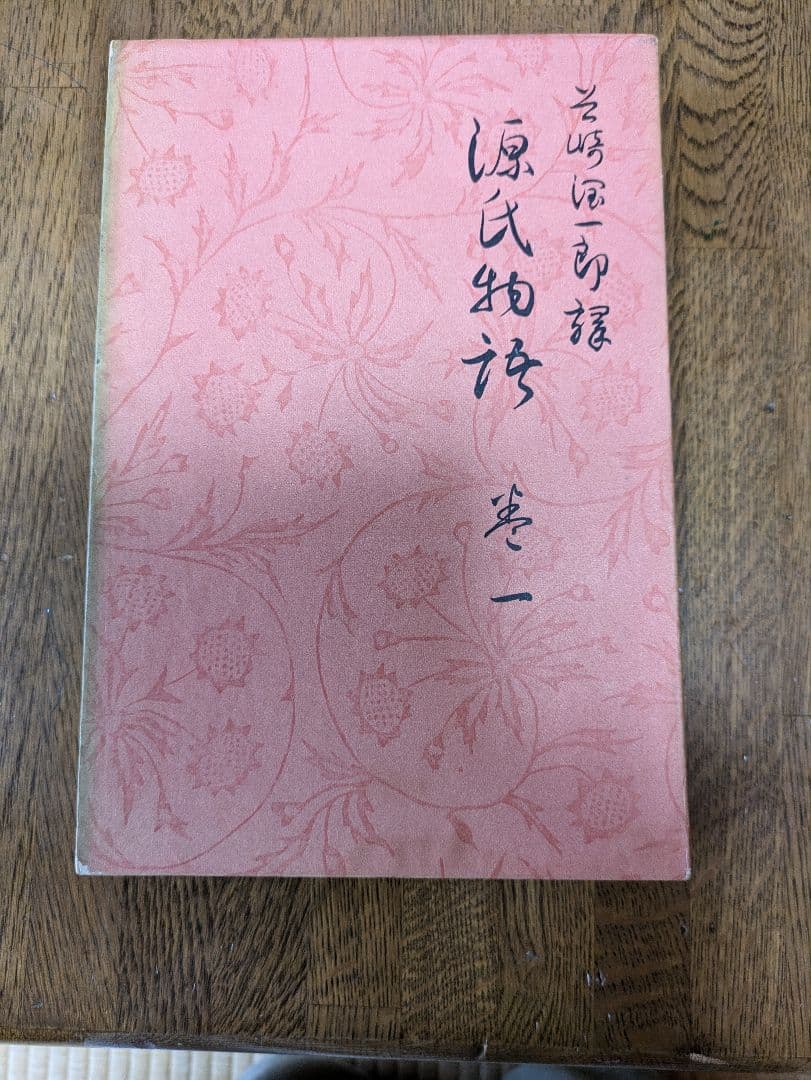 谷崎潤一郎譯
源氏物語 卷一